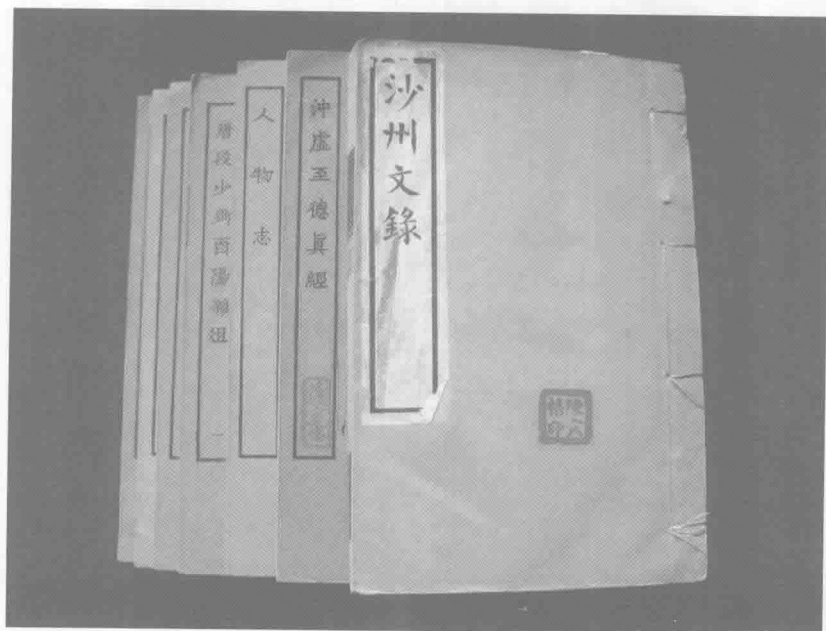 沙州文錄
沖虛至德眞經
人物志
唐段少卿酉陽雜俎
一